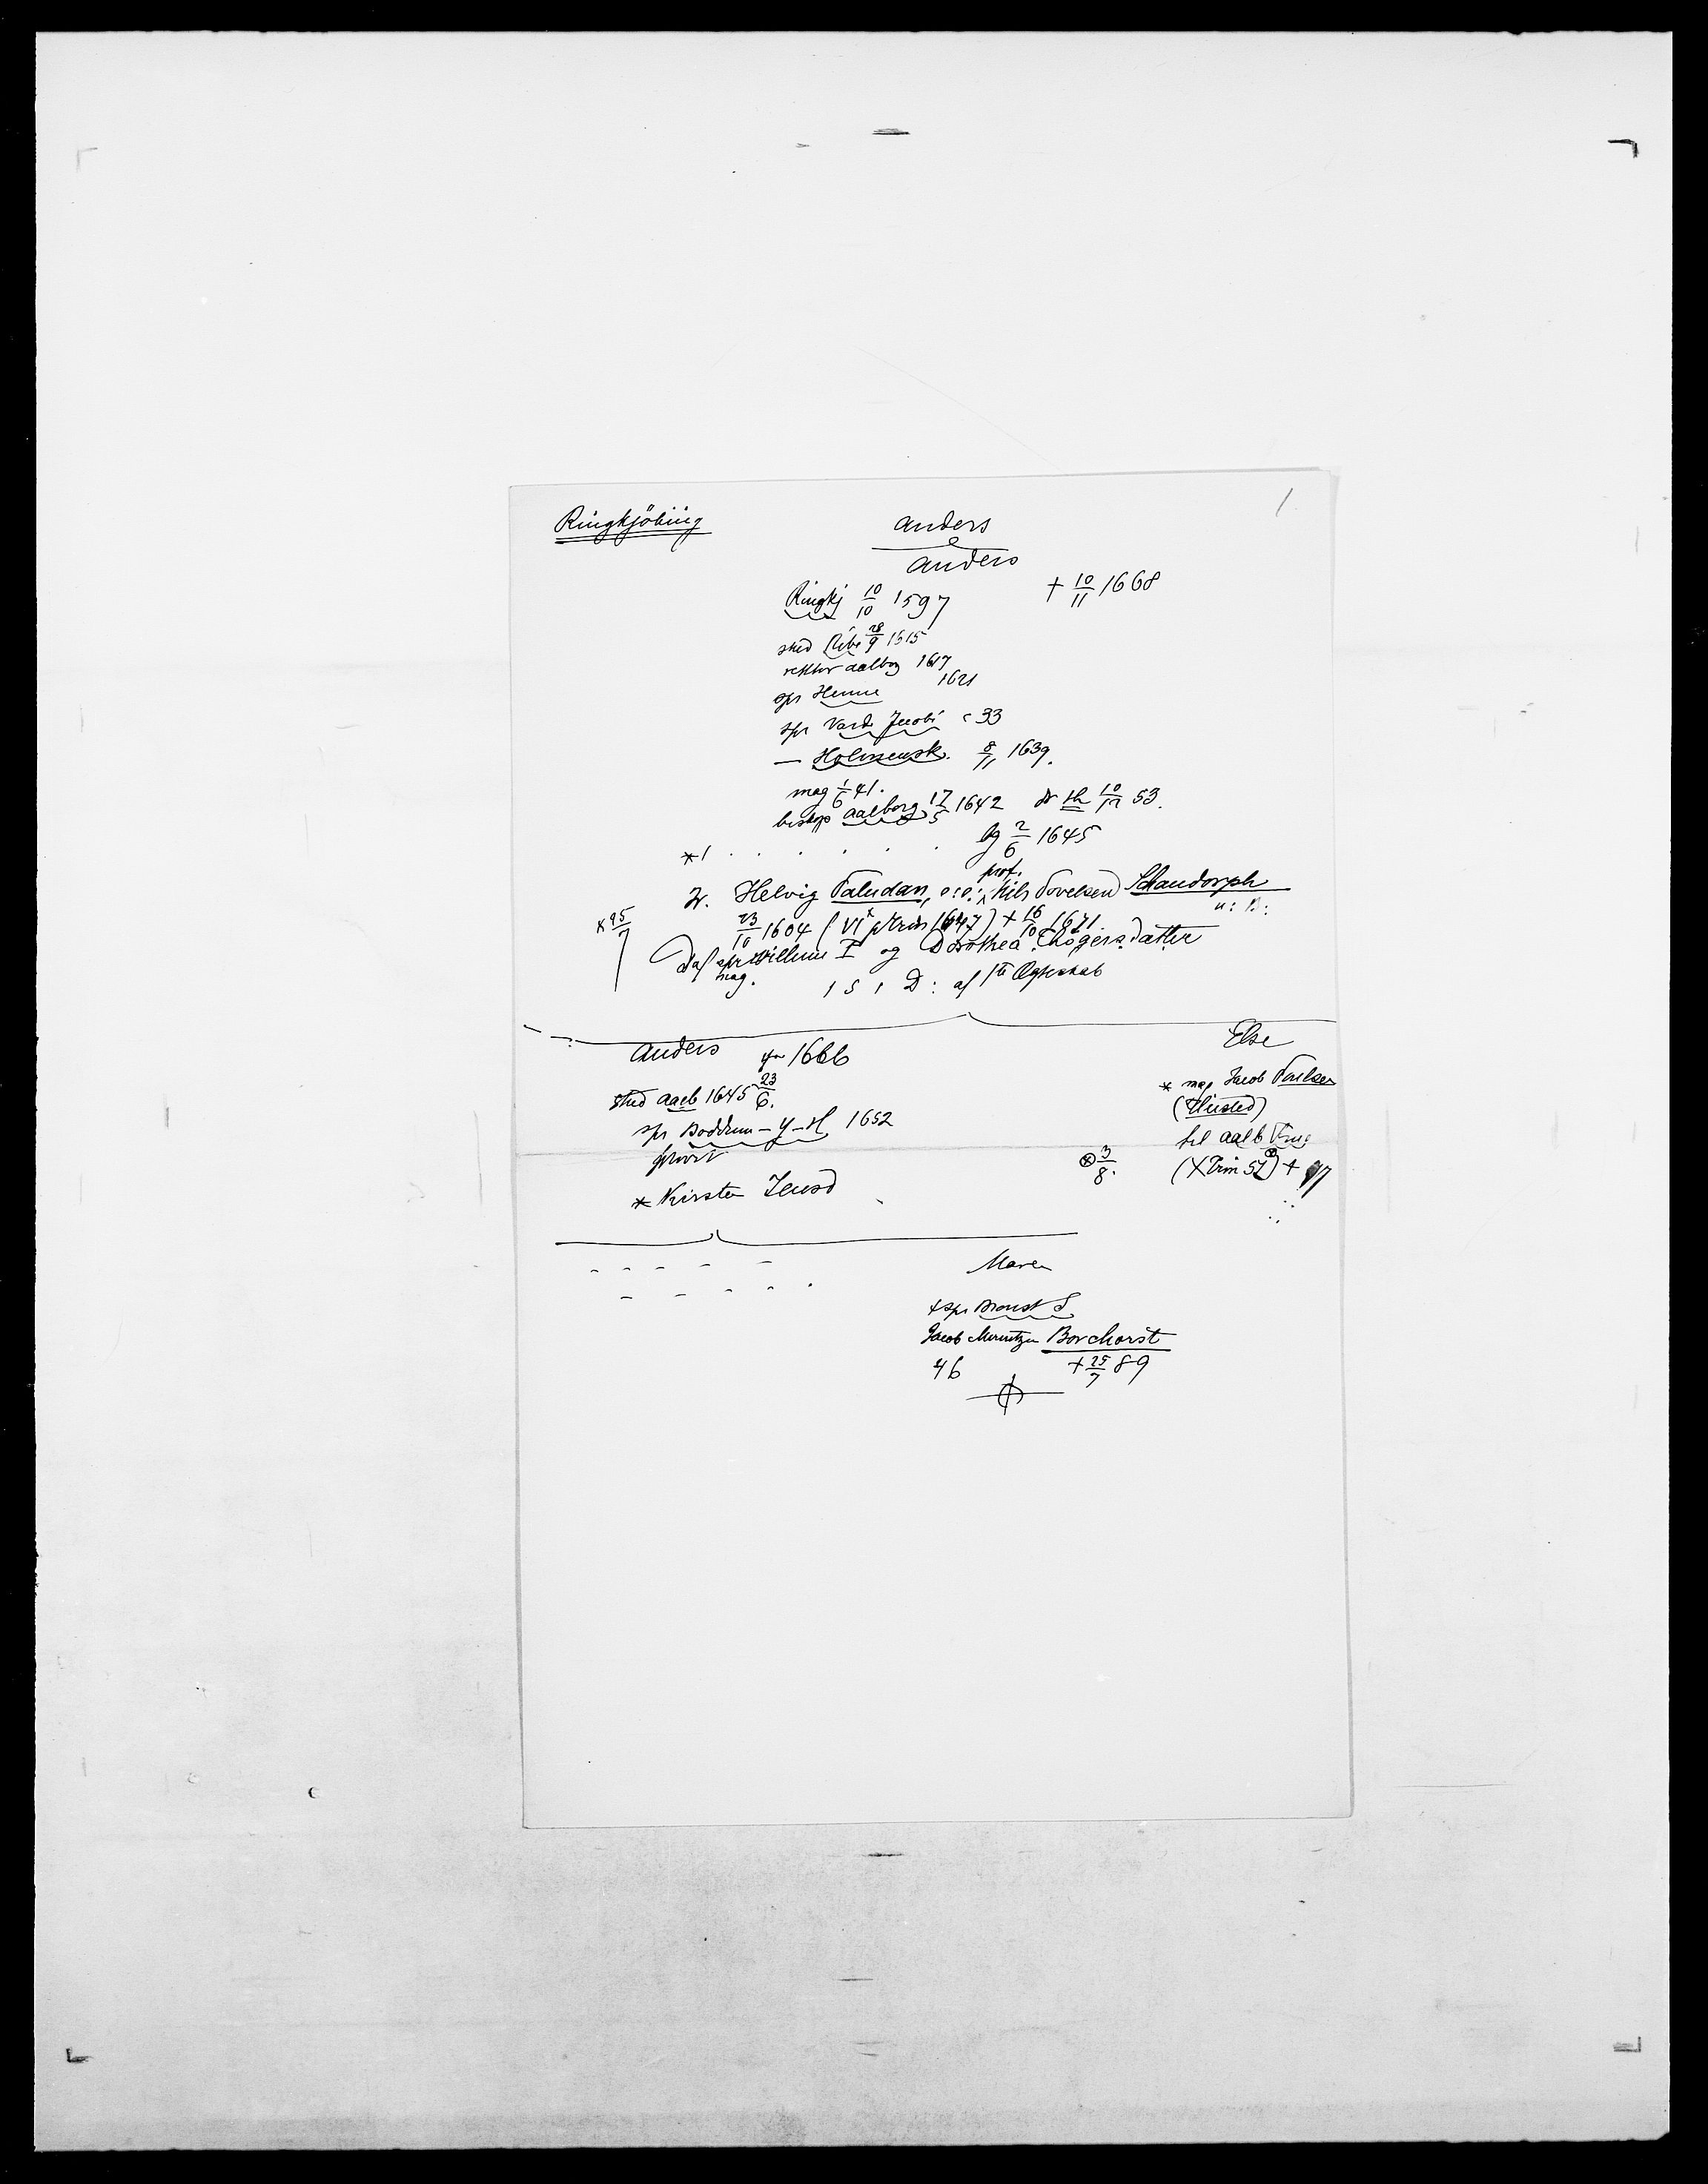 1
Ringkjöbing
Anders
Anders
Ringkj 10/10 1597 † 10/11 1668
stud Ribe 28/9 1615
rektor Aalborg 1617
spr Henne 1621
spr Varde Jacobi 33
— Holmensk. 8/11 1639.
mag 1/6 41.
biskop Aalborg 17/5 1642 dr th 10/12 53.
* 1 . . . . . . bg 2/6 1645
prof.
2. Helvig Paludan, e. e. Nils Povelsen Schandorph
* 25/7 23/10 1604 (VI p Trin 1647) † 16/10 1671
D af spr Willum I og Dorothea Thögersdatter
mag.
1 S 1 D: af 1te Ægteskab
Anders før 1666
stud Aalb 1645 23/6.
spr Boddum-Y-H 1652
provst
* Kirsten Jensd
Else
* mag Jacob Poulsen
(Husted)
til Aalb Frue
⊗ 3/8. (X Trin 52) † 97
Maren
* spr Broust S.
Jacob Mouritzen Borchorst
46 † 25/7 89